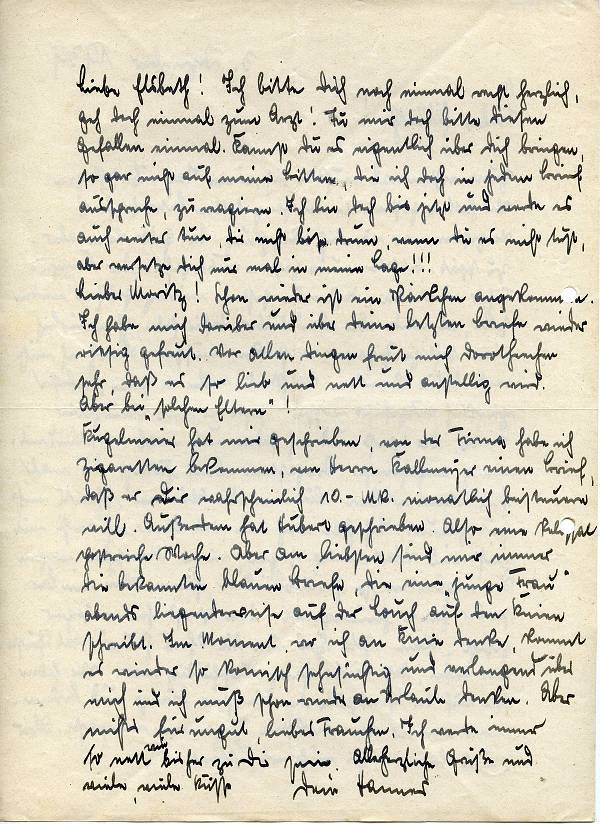 Liebe Elsbeth! Ich bitte Dich noch einmal recht herzlich,
geh doch einmal zum Arzt! Tu mir doch bitte diesen
Gefallen einmal. Kannst Du es eigentlich über Dich bringen,
so gar nicht auf meine Bitten, die ich doch in jedem Brief
ausspreche, zu reagieren. Ich bin doch bis jetzt und werde es
auch weiter tun, Dir nicht böse drum, wenn Du es nicht tust,
aber versetze Dich nur mal in meine Lage!!!
Lieber Moritz! Schon wieder ist ein Päckchen angekommen.
Ich habe mich darüber und über Deine letzten Briefe wieder
riesig gefreut. Vor allen Dingen freut mich Dorotheechen
sehr, daß es so lieb und nett und anstellig wird.
Aber bei "solchen Eltern"!
Kugelmeier hat mir geschrieben, von der Firma habe ich
Zigaretten bekommen, von Herrn Kallmeyer einen Brief,
daß er Dir wahrscheinlich 10.- Mk. monatlich beisteuern
will. Außerdem hat Hubert geschrieben. Also eine
Woche. Aber am liebsten sind mir immer
die bekannten blauen Briefe, die eine "junge Frau"
abends liegenderweise auf der Couch auf den Knien
schreibt. Im Moment, wo ich an Knie denke, kommt
es wieder so komisch sehnsüchtig und verlangend über
mich und ich muß schon wieder an Urlaub denken. Aber
nichts für ungut, liebes Frauchen. Ich werde immer
so nett wie bisher zu Dir sein. Allerherzliche Grüße und
viele, viele Küsse Dein Hannes